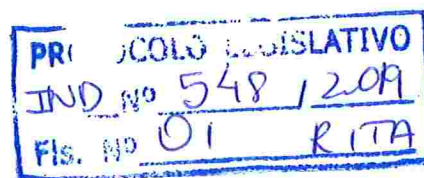 PROTOCOLO LEGISLATIVO
IND Nº 548 / 2019
Fls. Nº 01 RITA